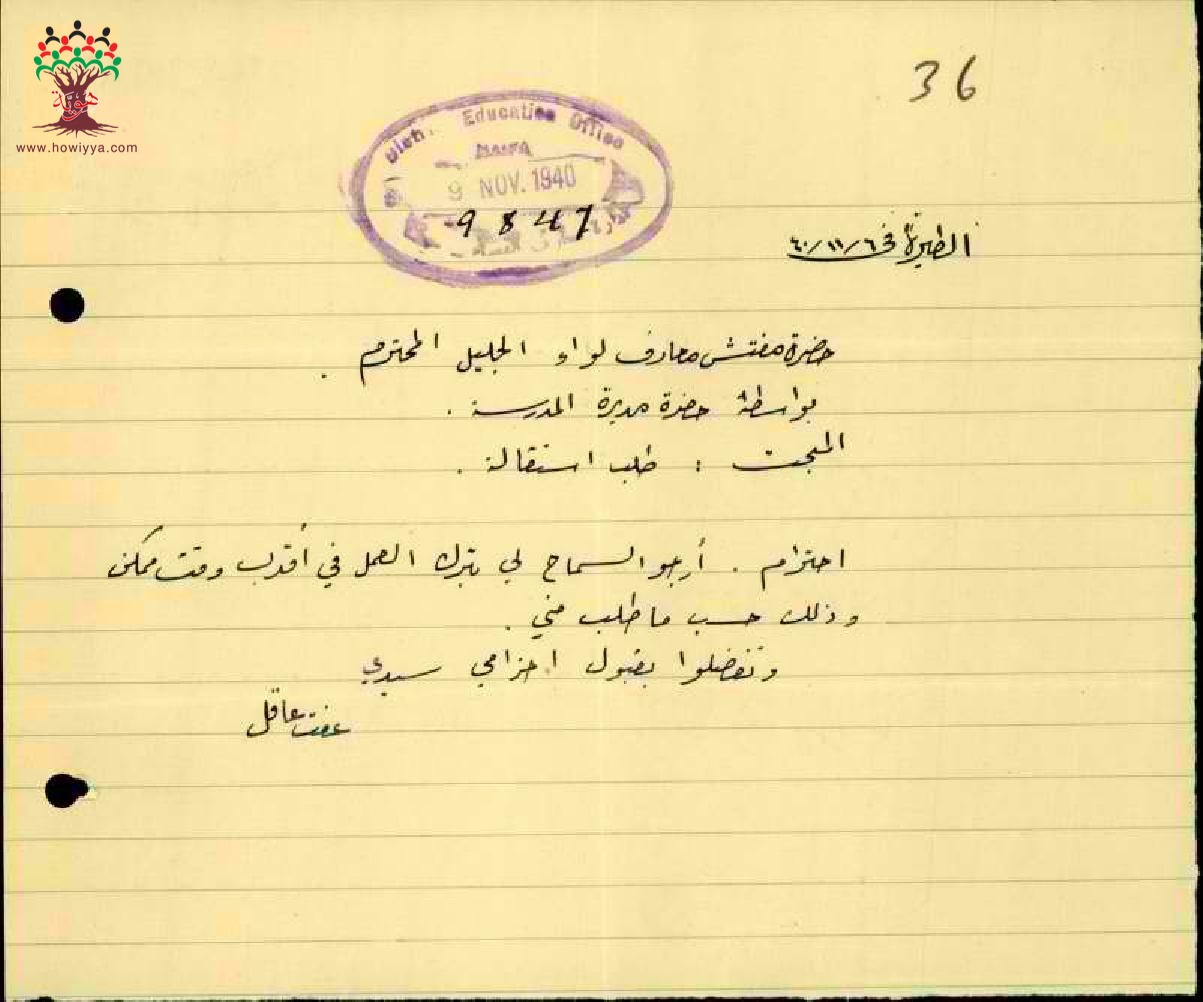 هوية
www.howiyya.com
36
Education Office
HAIFA
9 NOV. 1940
9847
الطيرة في ٦/١١/٤٠
حضرة مفتش معارف لواء الجليل المحترم .
بواسطة حضرة مديرة المدرسة .
المبحث : طلب استقالة .
احترام . أرجو السماح لي بترك العمل في أقرب وقت ممكن
وذلك حسب ما طلب مني .
وتفضلوا بقبول احترامي سيدي
عفت عاقل